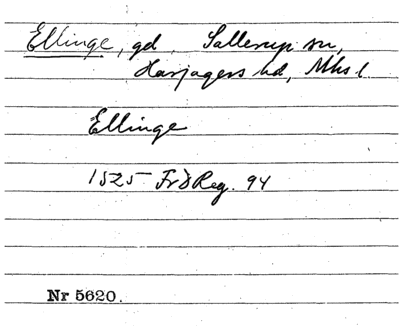 Ellinge, gd, Sallerup sn,
Harjagers hd, Mhs l
Ellinge
1525 FrdReg. 94
Nr 5620.